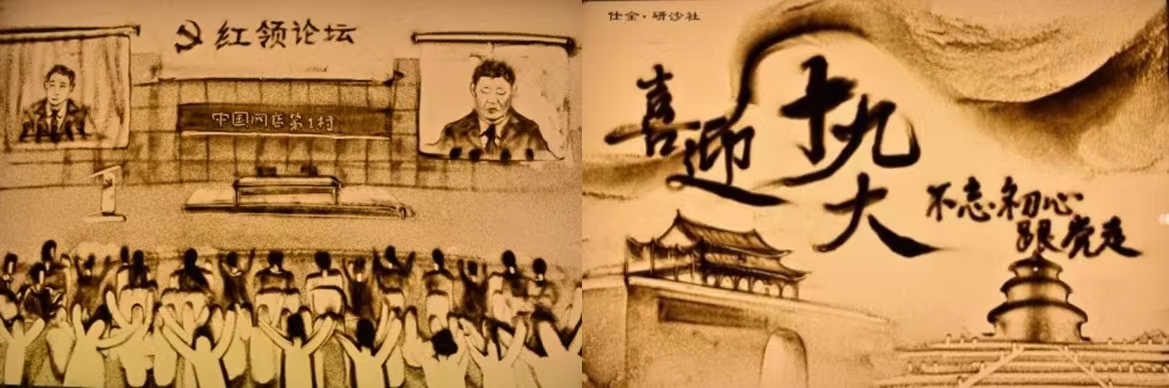 红领论坛
中国网店第1村
仕全·研沙社
喜迎
十九大
不忘初心
跟党走